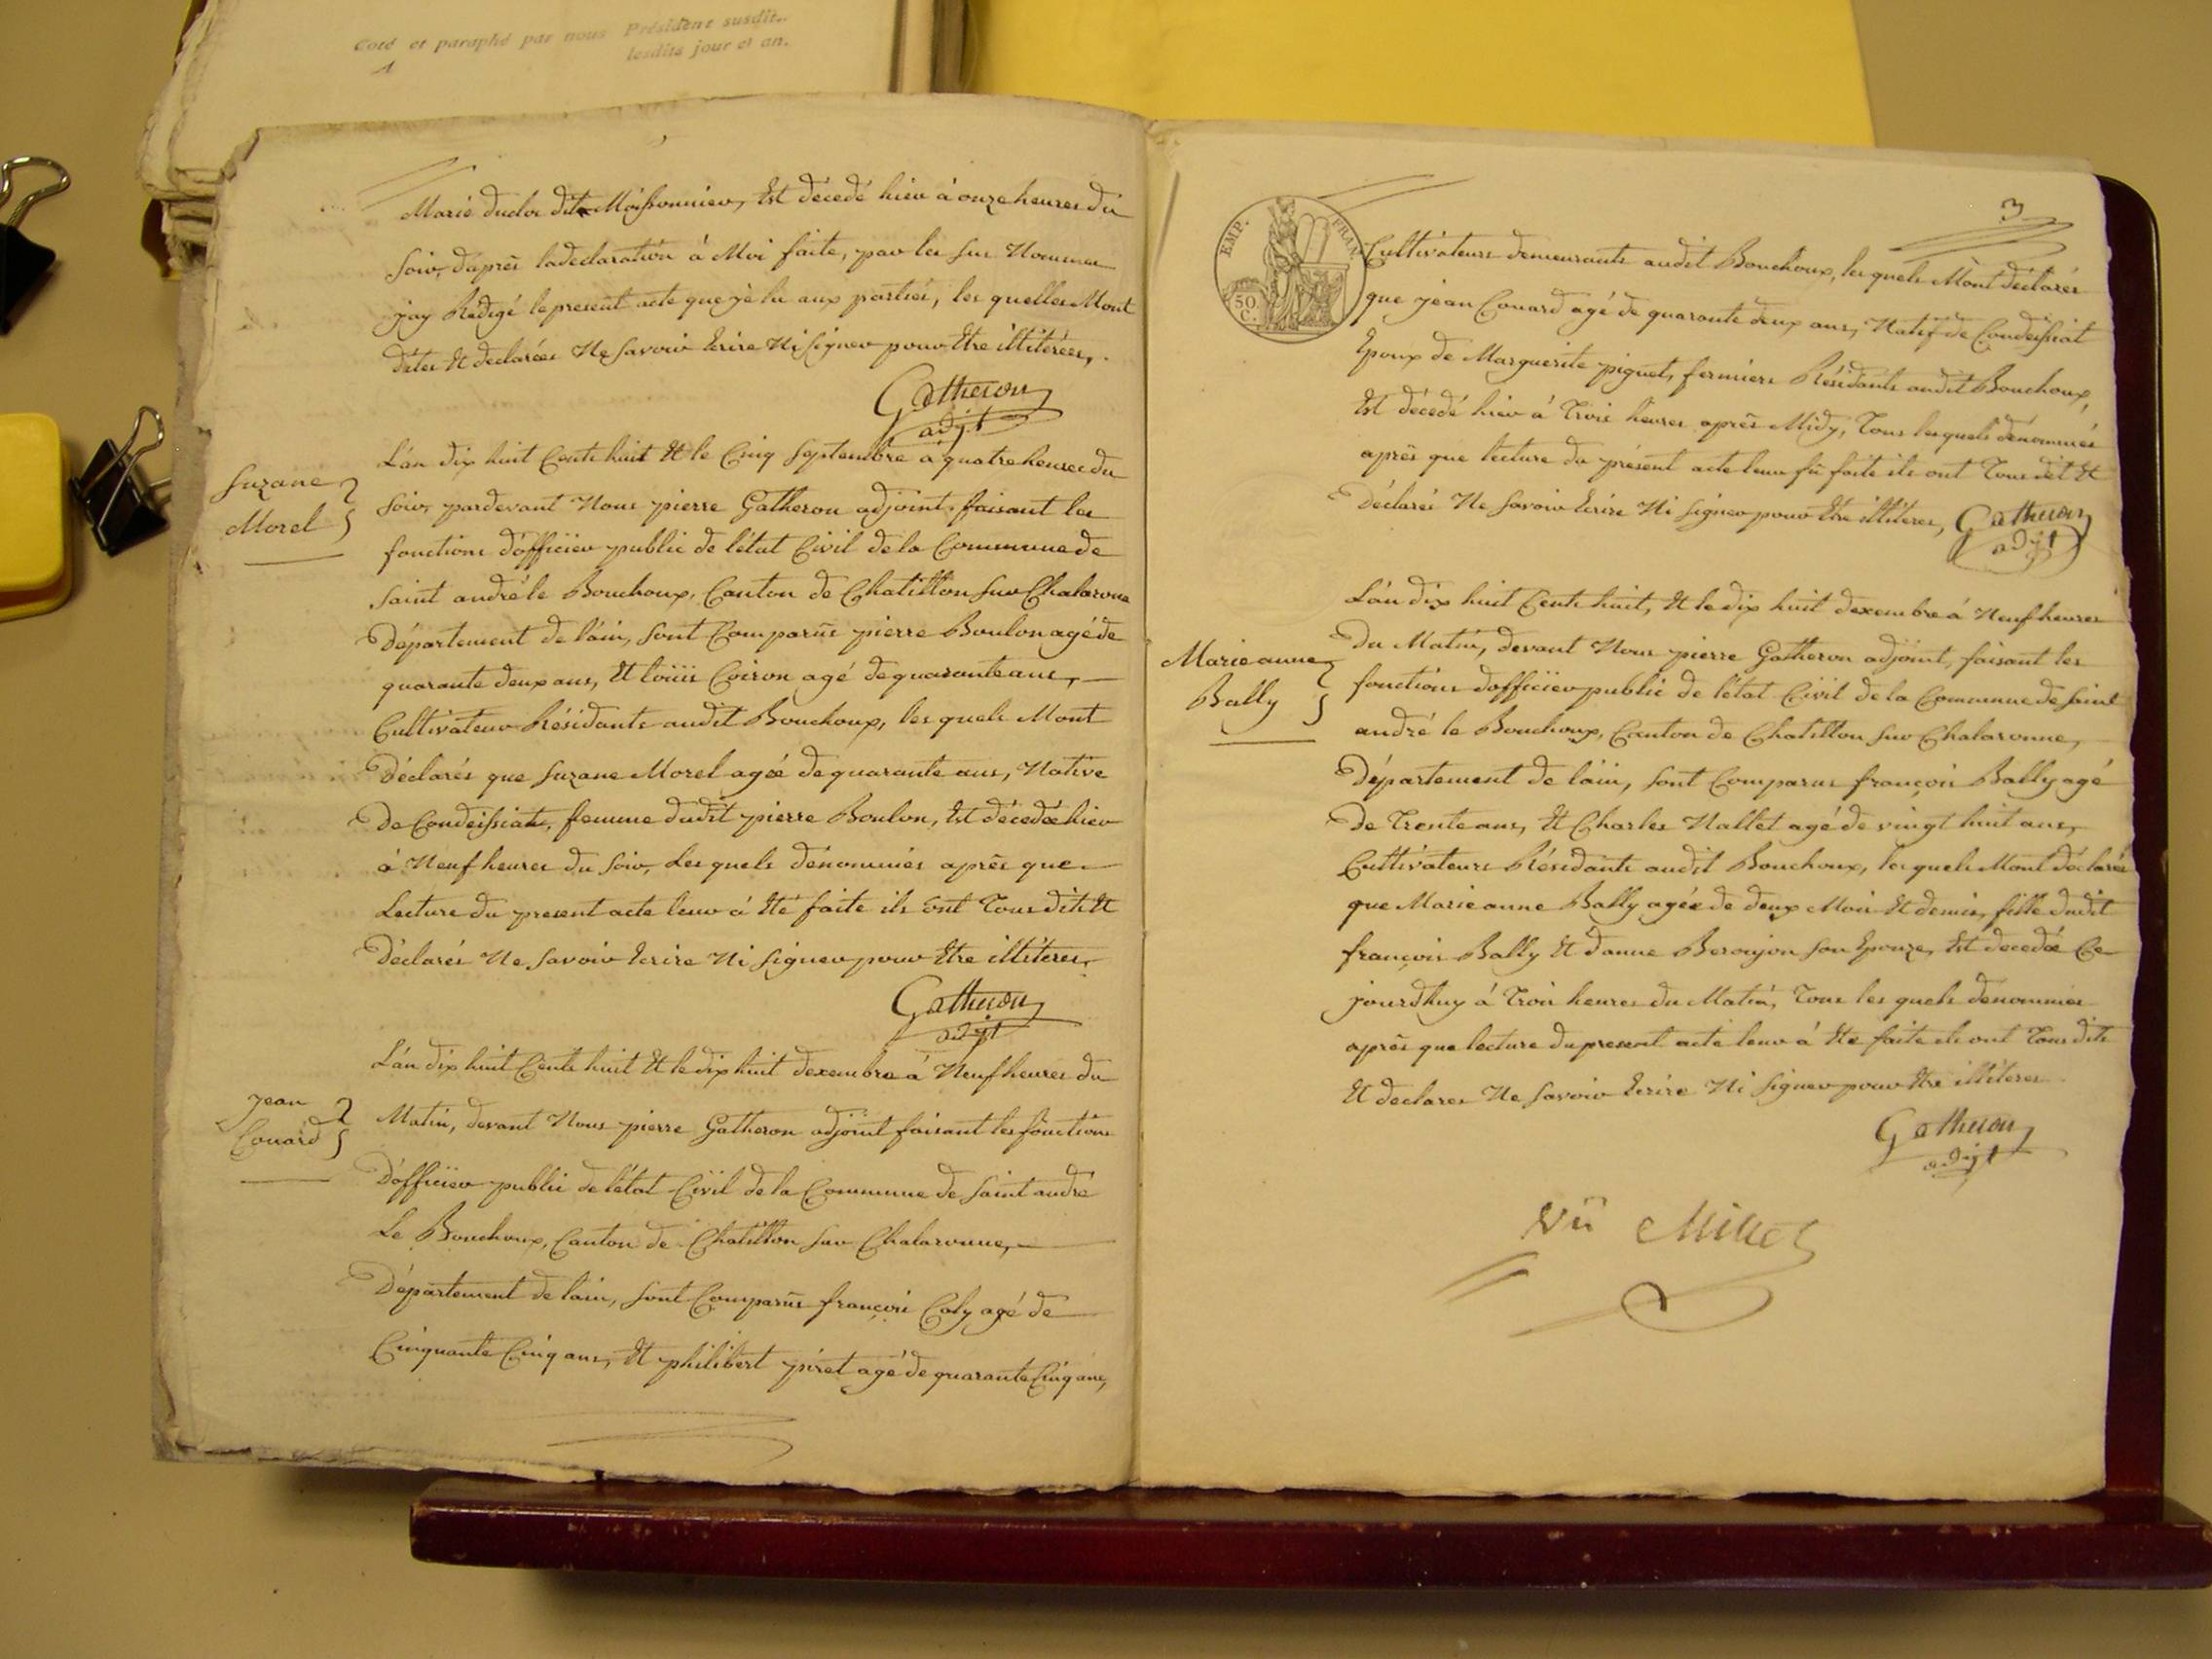 Coté et paraphé par nous Président susdit..
lesdits jour et an.
1
Marie duclos dit Moissonnier, Est décedé hier à onze heures du
soir, d'après ladeclaration à Moi faite, par les sus Nommes
jay Redigé le present acte que j'è lu aux partiés, les quelles Mont
dites Et declarées Ne savoir Ecrire Ni signer pour Etre illitérées,
Gatheron
adjt
Suzane
Morel
L'an dix huit Cents huit Et le Cinq septembre a quatre heures du
soir, pardevant Nous pierre Gatheron adjoint, faisant les
fonctions d'officier public de l'état Civil de la Commune de
saint andré le Bouchoux, Canton de Chatillon sur Chalarone
Département de l'ain, sont Comparus pierre Boulon agé de
quarante deux ans, Et loüis Coiron agé de quarante ans,
Cultivateur Résidants audit Bouchoux, les quels Mont
Déclarés que suzane Morel agée de quarante ans, Native
De Condeissiat, femme dudit pierre Boulon, Est décedée hier
à Neuf heures du soir, Les quels dénommés après que
Lecture du present acte leur à Eté faite ils ont Tous dit Et
Déclarés Ne savoir Ecrire Ni signer pour Etre illiteres,
Gatheron
adjt
jean
Couard
L'an dix huit Cents huit Et le dix huit dexembre à Neuf heures du
Matin, devant Nous pierre Gatheron adjoint faisant les fonctions
D'officier public de l'état Civil de la Commune de saint andré
Le Bouchoux, Canton de Chatillon sur Chalaronne,
Département de lain, sont Comparus françois Coly agé de
Cinquante Cinq ans, Et philibert piret agé de quarante Cinq ans,
3
EMP. FRAN.
50
C.
Cultivateurs demeurants audit Bouchoux, les quels Mont déclarés
que jean Couard agé de quarante deux ans, Natif de Condeissiat
Epoux de Marguerite piguet, fermiers Résidants audit Bouchoux,
Est décedé hier à Trois heures après Midy, Tous les quels dénommés
après que lecture du présent acte leur fû faite ils ont Tous dit Et
Déclarés Ne savoir Ecrire Ni signer pour Etre illiteres, Gatheron
adjt
Marie anne
Bally
L'an dix huit Cents huit, Et le dix huit dexembre à Neuf heures
Du Matin, devant Nous pierre Gatheron adjoint, faisant les
fonctions d'officier public de l'état Civil de la Commune de saint
andré le Bouchoux, Canton de Chatillon sur Chalaronne,
Département de l'ain, sont Comparus françois Bally agé
De Trente ans, Et Charles Nallet agé de vingt huit ans,
Cultivateurs Résidants audit Bouchoux, les quels Mont déclarés
que Marie anne Bally agée de deux Mois Et demis, fille dudit
françois Bally Et d'anne Beroujon son Epouze, Est decedée Ce
jourdhuy à Trois heures du Matin, Tous les quels denommés
après que lecture du present acte leur à Ete faite ils ont Tous dits
Et declares Ne savoir Ecrire Ni signer pour Etre illiteres
Gatheron
adjt
Vû Millet